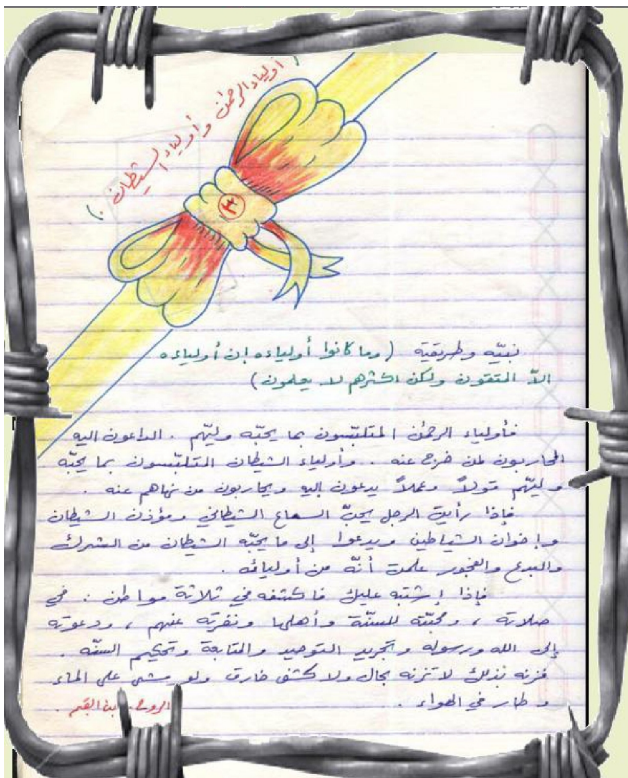 ( أولياء الرحمن وأولياء الشيطان )
٣
نبيّه وطريقته (وما كانوا أولياءه إن أولياءه
الاّ المتقون ولكن اكثرهم لا يعلمون)
فأولياء الرحمن المتلبّسون بما يحبّه وليّهم . الداعون اليه
المحاربون لمن خرج عنه . . وأولياء الشيطان المتلبّسون بما يحبّه
وليّهم قولاً وعملاً يدعون إليه ويحاربون من نهاهم عنه .
فإذا رأيت الرجل يحبّ السماع الشيطاني ومؤذن الشيطان
وإخوان الشياطين ويدعوا إلى ما يحبّه الشيطان من الشرك
والبدع والفجور علمت أنّه من أوليائه .
فإذا إشتبه عليك فاكشفه في ثلاثة مواطن : في
صلاته ، ومحبّته للسنّة وأهلها ونفرته عنهم ، ودعوته
إلى الله ورسوله وتجريد التوحيد والمتابعة وتحكيم السنّه .
فزنه بذلك لا تزنه بحال ولا كشف خارق ولو مشى على الماء
وطار في الهواء .
الروح . ابن القيم .